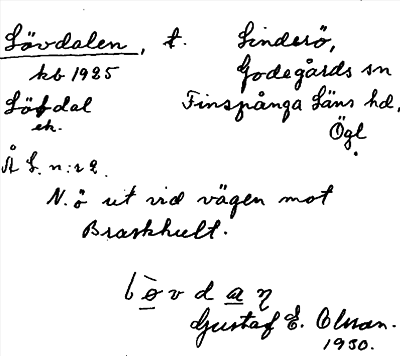 Lövdalen, t. Linderö,
kb 1925 Godegårds sn
Löfdal Finspånga Läns hd,
ek. Ögl.
Å L. n:r 2.
N. ö ut vid vägen mot
Braskhult.
Gustaf E. Olsson.
1930.